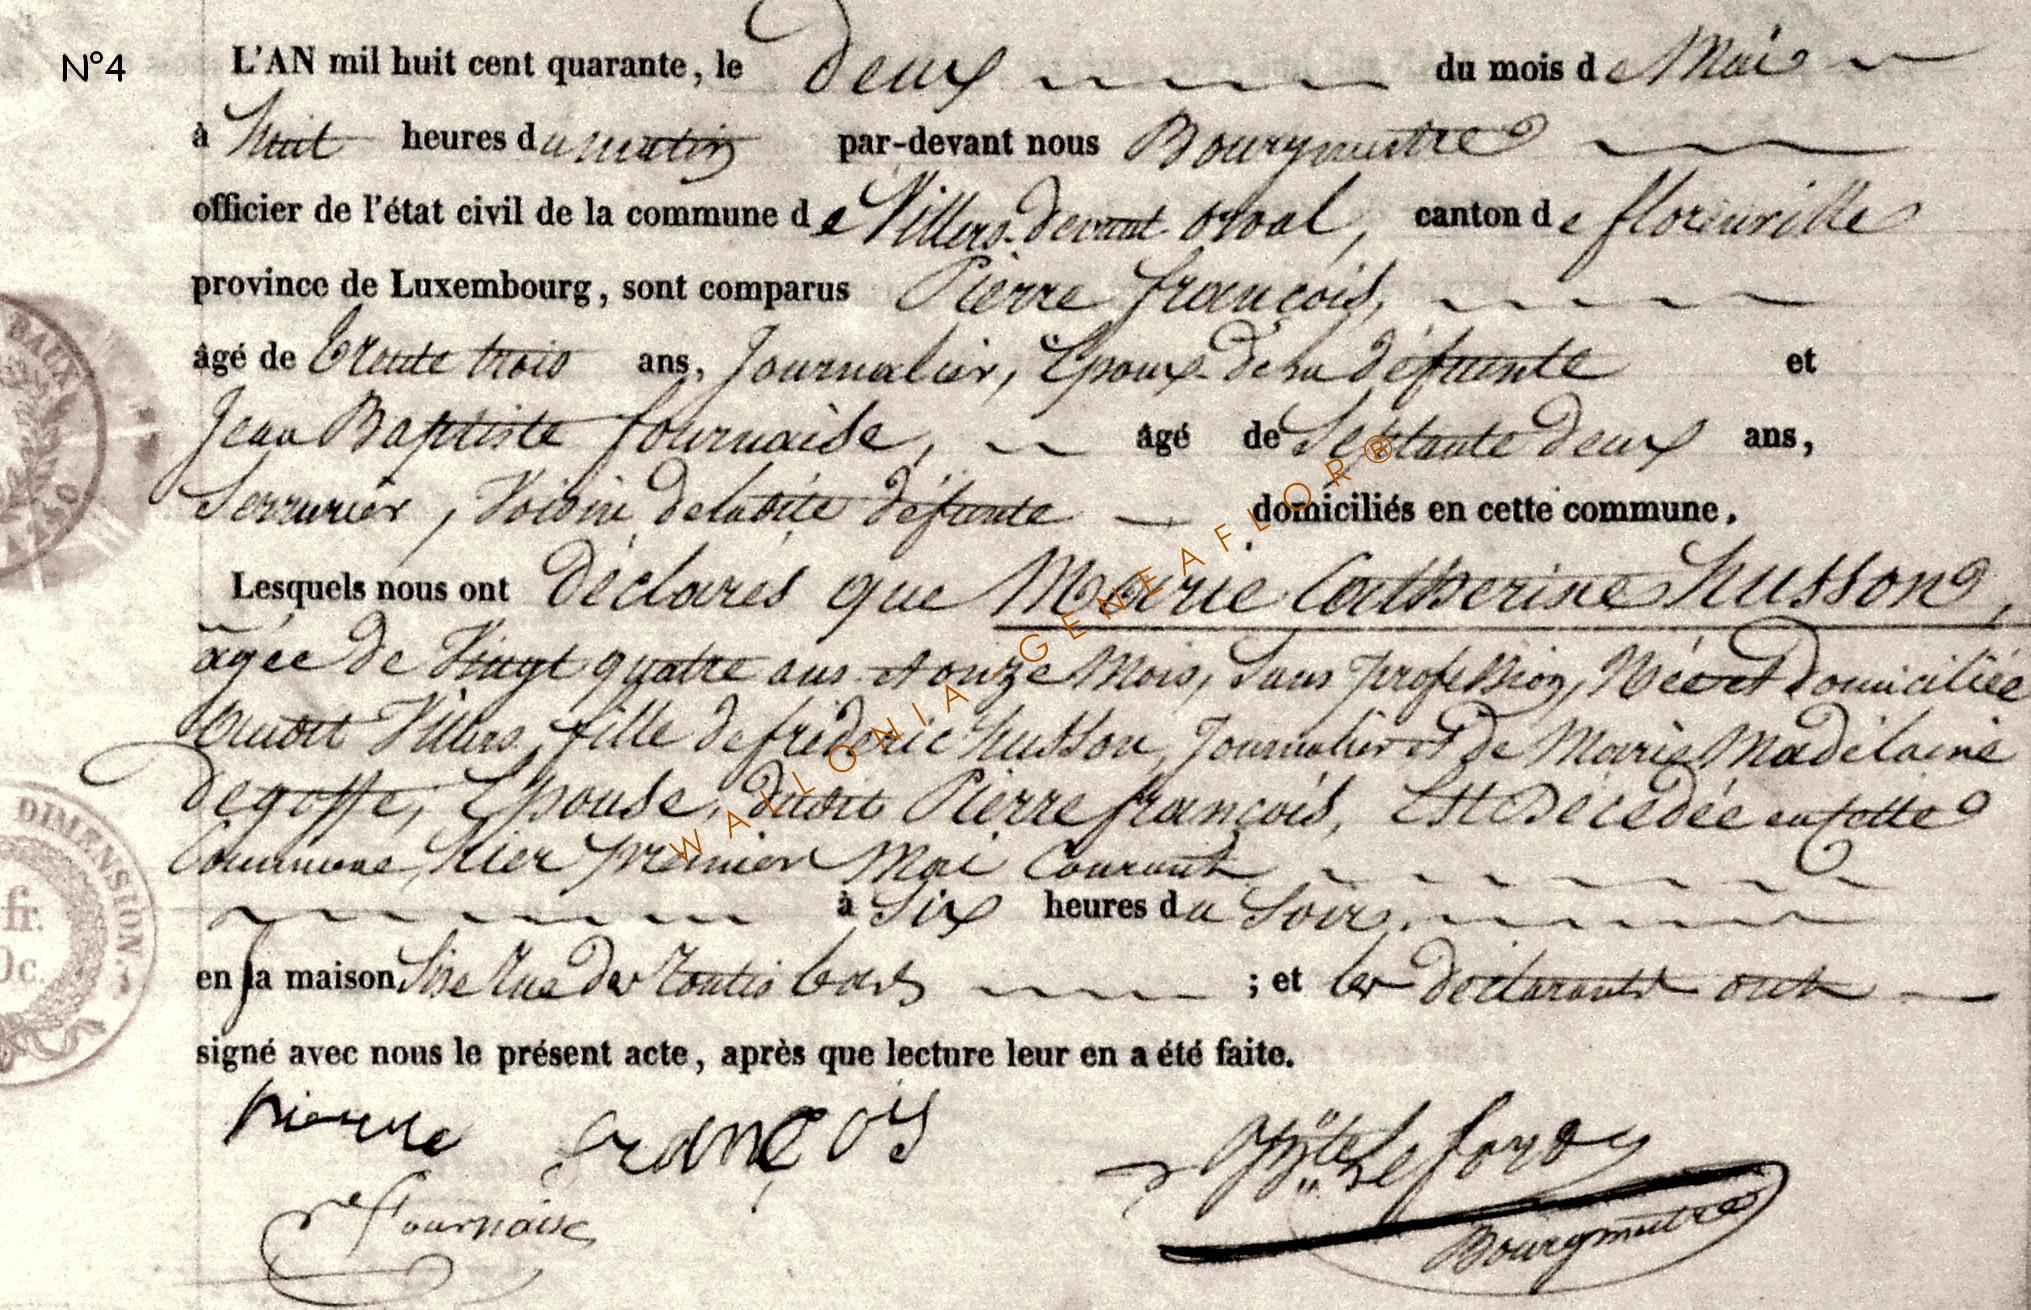 N°4
L'AN mil huit cent quarante, le Deux du mois de Mai
à huit heures du matin par-devant nous Bourgmestre
officier de l'état civil de la commune de Villers-devant orval, canton de florenville
province de Luxembourg, sont comparus Pierre françois,
âgé de trente trois ans, Journalier, Epoux de la défunte et
Jean Baptiste fournaise, âgé de Septante deux ans,
Serrurier, Voisin de la dite défunte domiciliés en cette commune.
Lesquels nous ont Déclarés que Marie Catherine Husson,
agée de Vingt quatre ans et onze Mois, Sans profession, Née et Domiciliée
audit Villers, fille de fréderic husson, Journalier et de Marie Madelaine
Degoffe, Epouse, dudit Pierre françois, Est Décédée en cette
Commune, hier premier Mai Courant
à Six heures du Soir.
en la maison Sise Rue des bas ; et les déclarants ont
signé avec nous le présent acte, après que lecture leur en a été faite.
Pierre françois
fournaise
Lefoy
Bourgmestre
BAUX
DIMENSION.
fr.
0c.
WALLONIA GENEAFLOR®